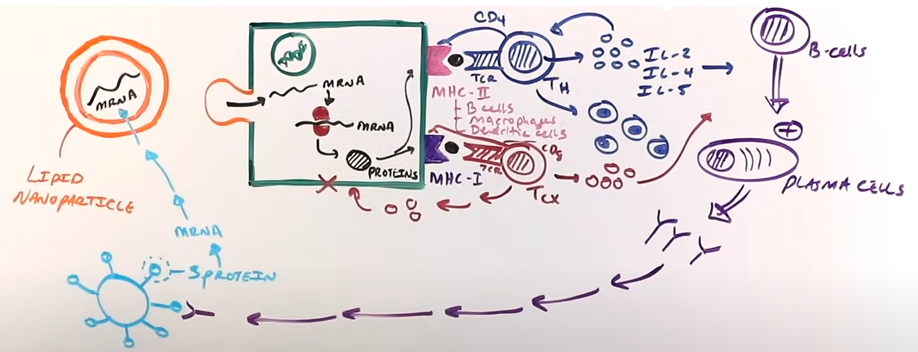 MRNA
LIPID
NANOPARTICLE
MRNA
S PROTEIN
MRNA
MRNA
PROTEINS
CD4
TCR
TH
MHC-II
B cells
Macrophages
Dendritic cells
MHC-I
TCR
CD8
TCX
IL-2
IL-4
IL-5
B-CELLS
+
PLASMA CELLS